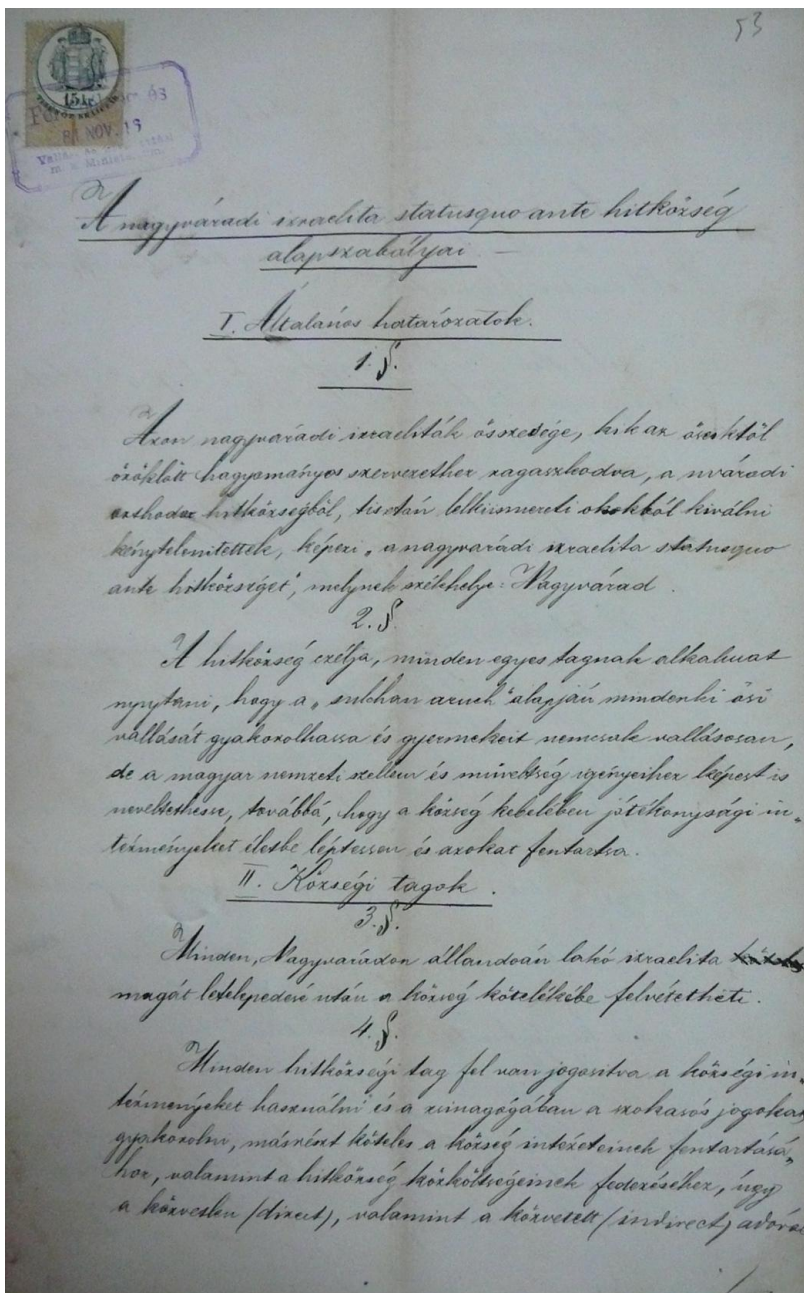 53
15 kr
81 NOV. 19
A nagyváradi izraelita statusquo ante hitközség
alapszabályai
I. Általános határozatok.
1. §.
Azon nagyváradi izraeliták összesége, kik az ősöktől
öröklött hagyományos szervezethez ragaszkodva, a nváradi
orthodox hitközségből, tisztán lelkiismereti okokból kiválni
kénytelenittettek, képezi „a nagyváradi izraelita statusquo
ante hitközséget", melynek székhelye: Nagyvárad.
2. §.
A hitközség czélja, minden egyes tagnak alkalmat
nyujtani, hogy a „sulchan aruch" alapján mindenki ősi
vallását gyakorolhassa és gyermekeit nemcsak vallásosan,
de a magyar nemzeti szellem és műveltség igényeihez képest is
neveltethesse, továbbá, hogy a község kebelében jótékonysági in„
tézményeket életbe léptessen és azokat fentartsa.
II. Községi tagok.
3. §.
Minden, Nagyváradon állandóan lakó izraelita
magát letelepedése után a község kötelékébe felvétetheti.
4. §.
Minden hitközségi tag fel van jogositva a községi in„
tézményeket használni és a zsinagógában a szokásos jogokat
gyakorolni, másrészt köteles a község intézeteinek fentartásá„
hoz, valamint a hitközség közköltségeinek fedezéséhez, úgy
a közvetlen (direct), valamint a közvetett (indirect) adózás